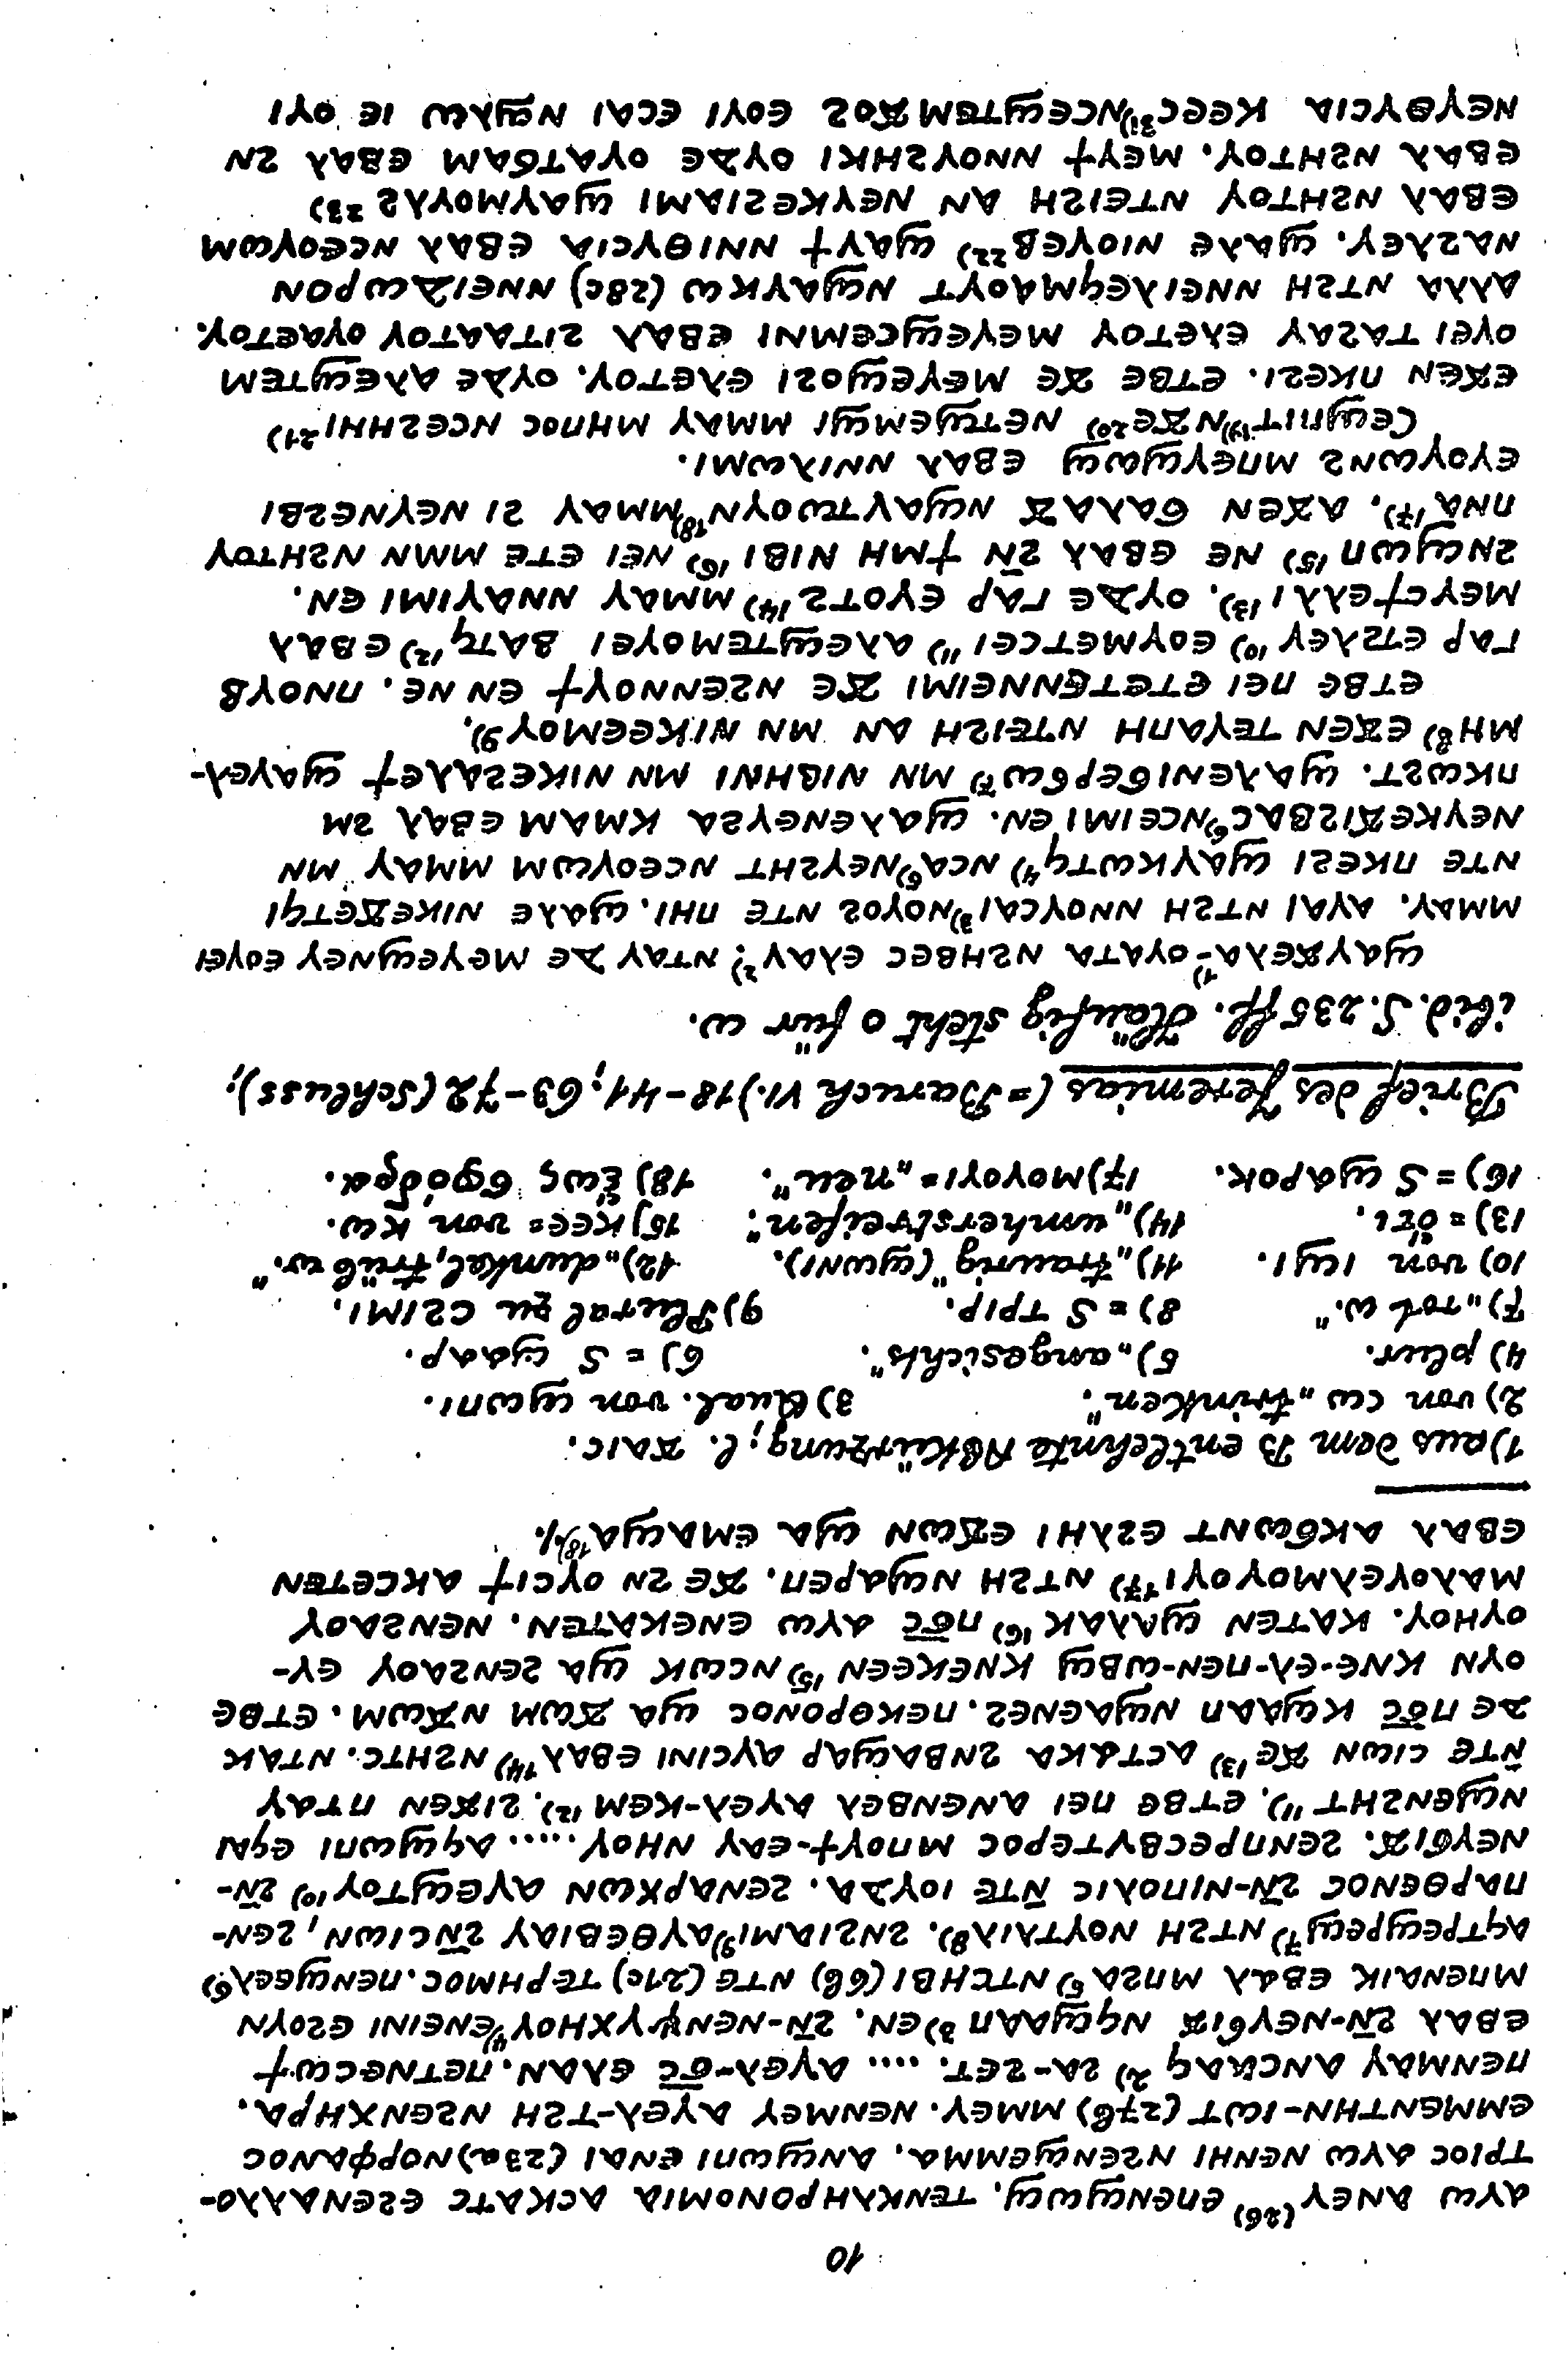 10
ⲁⲩⲱ ⲁⲛⲉⲩ (26) ⲉⲡⲉⲛϣⲱϣ. ⲧⲉⲛⲕⲗⲏⲣⲟⲛⲟⲙⲓⲁ ⲁⲥⲕⲁⲧⲥ ⲉϩⲉⲛⲁⲗⲗⲟ-
ⲧⲣⲓⲟⲥ ⲁⲩⲱ ⲛⲉⲛⲏⲓ ⲛϩⲉⲛϣⲉⲙⲙⲁ. ⲁⲛϣⲱⲡⲓ ⲉⲛⲁⲓ (23a) ⲛⲟⲣⲫⲁⲛⲟⲥ
ⲉⲙⲙⲉⲛⲧⲏⲛ-ⲓⲱⲧ (27b) ⲙⲙⲉⲩ. ⲛⲉⲛⲙⲉⲩ ⲁⲩⲉⲗ-ⲧϩⲏ ⲛϩⲉⲛⲭⲏⲣⲁ.
ⲡⲉⲛⲙⲁⲩ ⲁⲛⲥⲁⲁϥ 2) ϩⲁ-ϩⲉⲧ. .... ⲁⲩⲉⲗ-ϭⲥ ⲉⲗⲁⲛ. ⲡⲉⲧⲛⲉⲥⲱϯ
ⲉⲃⲁⲗ ϩⲛ̄-ⲛⲉⲩϭⲓϫ ⲛϥϣⲁⲁⲡ 3) ⲉⲛ. ϩⲛ̄-ⲛⲉⲛⲯⲩⲭⲏⲟⲩ 4) ⲉⲛⲉⲓⲛⲓ ⲉϩⲟⲩⲛ
ⲙⲡⲉⲛⲁⲓⲕ ⲉⲃⲁⲗ ⲙⲡϩⲁ 5) ⲛⲧⲥⲏⲃⲓ (6b) ⲛⲧⲉ (21c) ⲧⲉⲣⲏⲙⲟⲥ. ⲡⲉⲛϣⲉⲉⲗ 6)
ⲁϥⲧⲣⲉϣⲣⲉϣ 7) ⲛⲧϩⲏ ⲛⲟⲩⲧⲗⲓⲗ 8). ϩⲛϩⲓⲁⲙⲓ 9) ⲁⲩⲑⲉⲃⲓⲁⲩ ϩⲛ̄ⲥⲓⲱⲛ, ϩⲉⲛ-
ⲡⲁⲣⲑⲉⲛⲟⲥ ϩⲛ̄-ⲛⲓⲡⲟⲗⲓⲥ ⲛ̄ⲧⲉ ⲓⲟⲩⲇⲁ. ϩⲉⲛⲁⲣⲭⲱⲛ ⲁⲩⲉϣⲧⲟⲩ 10) ϩⲛ̄-
ⲛⲉⲩϭⲓϫ. ϩⲉⲛⲡⲣⲉⲥⲃⲩⲧⲉⲣⲟⲥ ⲙⲡⲟⲩϯ-ⲉⲁⲩ ⲛⲏⲟⲩ. .... ⲁϥϣⲱⲡⲓ ⲉϥⲙ
ⲛϣⲉⲛϩⲏⲧ 11). ⲉⲧⲃⲉ ⲡⲉⲓ ⲁⲛⲉⲛⲃⲉⲗ ⲁⲩⲉⲗ-ⲕⲉⲙ 12). ϩⲓϫⲉⲛ ⲡⲧⲁⲩ
ⲛ̄ⲧⲉ ⲥⲓⲱⲛ ϫⲉ 13) ⲁⲥⲧⲁⲕⲁ ϩⲛⲃⲁϣⲁⲣ ⲁⲩⲥⲓⲛⲓ ⲉⲃⲁⲗ 14) ⲛϩⲏⲧⲥ. ⲛⲧⲁⲕ
ⲇⲉ ⲡϭⲥ ⲕϣⲁⲁⲡ ⲛϣⲁⲉⲛⲉϩ. ⲡⲉⲕⲑⲣⲟⲛⲟⲥ ϣⲁ ϫⲱⲙ ⲛϫⲱⲙ. ⲉⲧⲃⲉ
ⲟⲩⲛ ⲕⲛⲉ-ⲉⲗ-ⲡⲉⲛ-ⲱⲃϣ ⲕⲛⲉⲕⲉⲉⲛ 15) ⲛⲥⲱⲕ ϣⲁ ϩⲉⲛϩⲁⲟⲩ ⲉⲩ-
ⲟⲩⲏⲟⲩ. ⲕⲁⲧⲉⲛ ϣⲁⲗⲁⲕ 16) ⲡϭⲥ ⲁⲩⲱ ⲉⲛⲉⲕⲁⲧⲉⲛ. ⲛⲉⲛϩⲁⲟⲩ
ⲙⲁⲗⲟⲩⲉⲗⲙⲟⲩⲟⲩⲓ 17) ⲛⲧϩⲏ ⲛϣⲁⲣⲉⲡ. ϫⲉ ϩⲛ ⲟⲩⲥⲓϯ ⲁⲕⲥⲉⲧⲉⲛ
ⲉⲃⲁⲗ ⲁⲕϭⲱⲛⲧ ⲉϩⲗⲏⲓ ⲉϫⲱⲛ ϣⲁ ⲉⲙⲁϣⲁ 18)/.
1) aus dem B entlehnte Abkürzung; l. ϫⲁⲓⲥ.
2) von ⲥⲱ „trinken“. 3) Qual. von ϣⲱⲡⲓ.
4) plur. 5) „angesichts“. 6) = S ϣⲁⲁⲣ.
7) „rot w.“ 8) = S ⲧⲣⲓⲣ. 9) Plural zu ⲥϩⲓⲙⲓ.
10) von ⲓϣⲓ. 11) „traurig“ (ϣⲱⲛⲓ). 12) „dunkel, trüb w.“
13) = ὅτι. 14) „umherstreifen“. 15) ⲕⲉⲉ= von ⲕⲱ.
16) = S ϣⲁⲣⲟⲕ. 17) ⲙⲟⲩⲟⲩⲓ = „neu“. 18) ἕως σφόδρα.
Brief des Jeremias (= Baruch VI.) 18-41; 63-72 (Schluss);
ibid. S. 235 ff. Häufig steht ο für ω.
ϣⲁⲩϫⲉⲗⲁ- 1) ⲟⲩⲁⲧⲁ ⲛϩⲏⲃⲉⲥ ⲉⲗⲁⲩ 2); ⲛⲧⲁⲩ ⲇⲉ ⲙⲉⲩⲉϣⲛⲉⲩ ⲉⲟⲩⲉⲓ
ⲙⲙⲁⲩ. ⲁⲩⲁⲓ ⲛⲧϩⲏ ⲛⲛⲟⲩⲥⲁⲓ 3) ⲛⲟⲩⲟϩ ⲛⲧⲉ ⲡⲏⲓ. ϣⲁⲗⲉ ⲛⲓⲕⲉϫⲉⲧϥⲓ
ⲛⲧⲉ ⲡⲕⲉϩⲓ ϣⲁⲩⲕⲱⲧϥ 4) ⲛⲥⲁ 5) ⲛⲉⲩϩⲏⲧ ⲛⲥⲉⲟⲩⲱⲙ ⲙⲙⲁⲩ ⲙⲛ
ⲛⲉⲩⲕⲉϫⲓϩⲃⲁⲥ 6) ⲛⲥⲉⲓⲙⲓ ⲉⲛ. ϣⲁⲗⲉⲛⲉⲩϩⲁ ⲕⲙⲁⲙ ⲉⲃⲁⲗ ϩⲙ
ⲡⲕⲱϩⲧ. ϣⲁⲗⲉⲛⲓϭⲉⲣϭⲱ 7) ⲙⲛ ⲛⲓⲃⲏⲛⲓ ⲙⲛ ⲛⲓⲕⲉϩⲁⲗⲉϯ ϣⲁⲩⲉⲗ-
ⲙⲏ 8) ⲉϫⲉⲛ ⲧⲉⲩⲁⲡⲏ ⲛⲧⲉⲓϩⲏ ⲁⲛ ⲙⲛ ⲛⲓⲕⲉⲉⲙⲟⲩ 9).
ⲉⲧⲃⲉ ⲡⲉⲓ ⲉⲧⲉⲧⲉⲛⲛⲉⲓⲙⲓ ϫⲉ ⲛϩⲉⲛⲛⲟⲩϯ ⲉⲛ ⲛⲉ. ⲡⲛⲟⲩⲃ
ⲅⲁⲣ ⲉⲧϩⲗⲉⲩ 10) ⲉⲟⲩⲙⲉⲧⲥⲉⲓ 11) ⲁⲗⲉϣⲧⲉⲙⲟⲩⲉⲓ ⲃⲁⲧϥ 12) ⲉⲃⲁⲗ
ⲙⲉⲩⲥϯⲉⲗⲗⲓ 13). ⲟⲩⲇⲉ ⲅⲁⲣ ⲉⲩⲟⲧϩ 14) ⲙⲙⲁⲩ ⲛⲛⲁⲩⲓⲙⲓ ⲉⲛ.
ϩⲛϣⲱⲡ 15) ⲛⲉ ⲉⲃⲁⲗ ϩⲛ̄ ϯⲙⲏ ⲛⲓⲃⲓ 16) ⲛⲉⲓ ⲉⲧⲉ ⲙⲙⲛ ⲛϩⲏⲧⲟⲩ
ⲡⲛⲁ 17). ⲁϫⲉⲛ ϭⲁⲗⲁϫ ⲛϣⲁⲩⲧⲱⲟⲩⲛ 18) ⲙⲙⲁⲩ ϩⲓ ⲛⲉⲩⲛⲉϩⲃⲓ
ⲉⲩⲟⲩⲱⲛϩ ⲙⲡⲉⲩϣⲱϣ ⲉⲃⲁⲗ ⲛⲛⲓⲗⲱⲙⲓ.
Ⲥⲉϣⲡⲓⲧ 19) ⲛϫⲉ 20) ⲛⲉⲧϣⲉⲙϣⲓ ⲙⲙⲁⲩ ⲙⲏⲡⲟⲥ ⲛⲥⲉϩⲏⲏⲓ 21)
ⲉϫⲉⲛ ⲡⲕⲉϩⲓ. ⲉⲧⲃⲉ ϫⲉ ⲙⲉⲩⲉϣⲟϩⲓ ⲉⲗⲉⲧⲟⲩ. ⲟⲩⲇⲉ ⲁⲗⲉϣⲧⲉⲙ
ⲟⲩⲉⲓ ⲧⲁϩⲁⲩ ⲉⲗⲉⲧⲟⲩ ⲙⲉⲩⲉϣⲥⲉⲙⲛⲓ ⲉⲃⲁⲗ ϩⲓⲧⲁⲁⲧⲟⲩ ⲟⲩⲁⲉⲧⲟⲩ.
ⲁⲗⲗⲁ ⲛⲧϩⲏ ⲛⲛⲉⲓⲗⲉϥⲙⲁⲟⲩⲧ ⲛϣⲁⲩⲕⲱ (28c) ⲛⲛⲉⲓⲇⲱⲣⲟⲛ
ⲛⲁϩⲗⲉⲩ. ϣⲁⲗⲉ ⲛⲓⲟⲩⲉⲃ 22) ϣⲁⲩϯ ⲛⲛⲓⲑⲩⲥⲓⲁ ⲉⲃⲁⲗ ⲛⲥⲉⲟⲩⲱⲙ
ⲉⲃⲁⲗ ⲛϩⲏⲧⲟⲩ ⲛⲧⲉⲓϩⲏ ⲁⲛ ⲛⲉⲩⲕⲉϩⲓⲁⲙⲓ ϣⲁⲩⲙⲟⲩⲗϩ 23)
ⲉⲃⲁⲗ ⲛϩⲏⲧⲟⲩ. ⲙⲉⲩϯ ⲛⲛⲟⲩϩⲏⲕⲓ ⲟⲩⲇⲉ ⲟⲩⲁⲧϭⲁⲙ ⲉⲃⲁⲗ ϩⲛ
ⲛⲉⲩⲑⲩⲥⲓⲁ ⲕⲉⲉⲥ 31) ⲛⲥⲉϣⲧⲉⲙϫⲟϩ ⲉⲟⲩⲓ ⲉⲥⲁⲓ ⲛϣⲗⲱ ⲓⲉ ⲟⲩⲓ